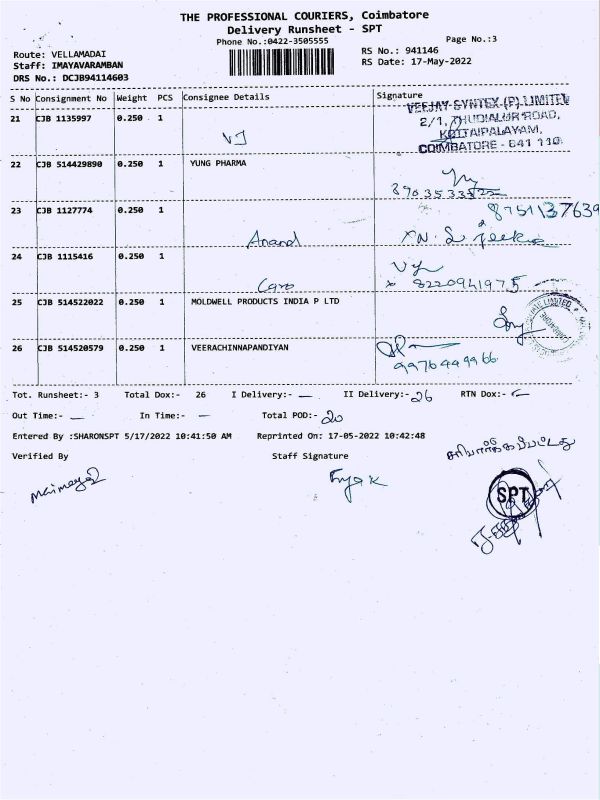 THE PROFESSIONAL COURIERS, Coimbatore
Delivery Runsheet - SPT
Phone No.:0422-3505555
Page No.:3
Route: VELLAMADAI
RS No.: 941146
Staff: IMAYAVARAMBAN
RS Date: 17-May-2022
DRS No.: DCJB94114603
S No Consignment No Weight PCS Consignee Details Signature
21 CJB 1135997 0.250 1 VJ
VEEJAY SYNTEX (P) LIMITED
2/1, THUDIALUR ROAD,
KOTTAIPALAYAM,
COIMBATORE - 641 110.
22 CJB 514429890 0.250 1 YUNG PHARMA
23 CJB 1127774 0.250 1 Anand
8751137639
24 CJB 1115416 0.250 1
8220941975
25 CJB 514522022 0.250 1 MOLDWELL PRODUCTS INDIA P LTD
26 CJB 514520579 0.250 1 VEERACHINNAPANDIYAN
9976449966
Tot. Runsheet:- 3 Total Dox:- 26 I Delivery:- — II Delivery:- 26 RTN Dox:- —
Out Time:- — In Time:- — Total POD:- 20
Entered By :SHARONSPT 5/17/2022 10:41:50 AM Reprinted On: 17-05-2022 10:42:48
Verified By Staff Signature
சரிபார்க்கப்பட்டது
SPT